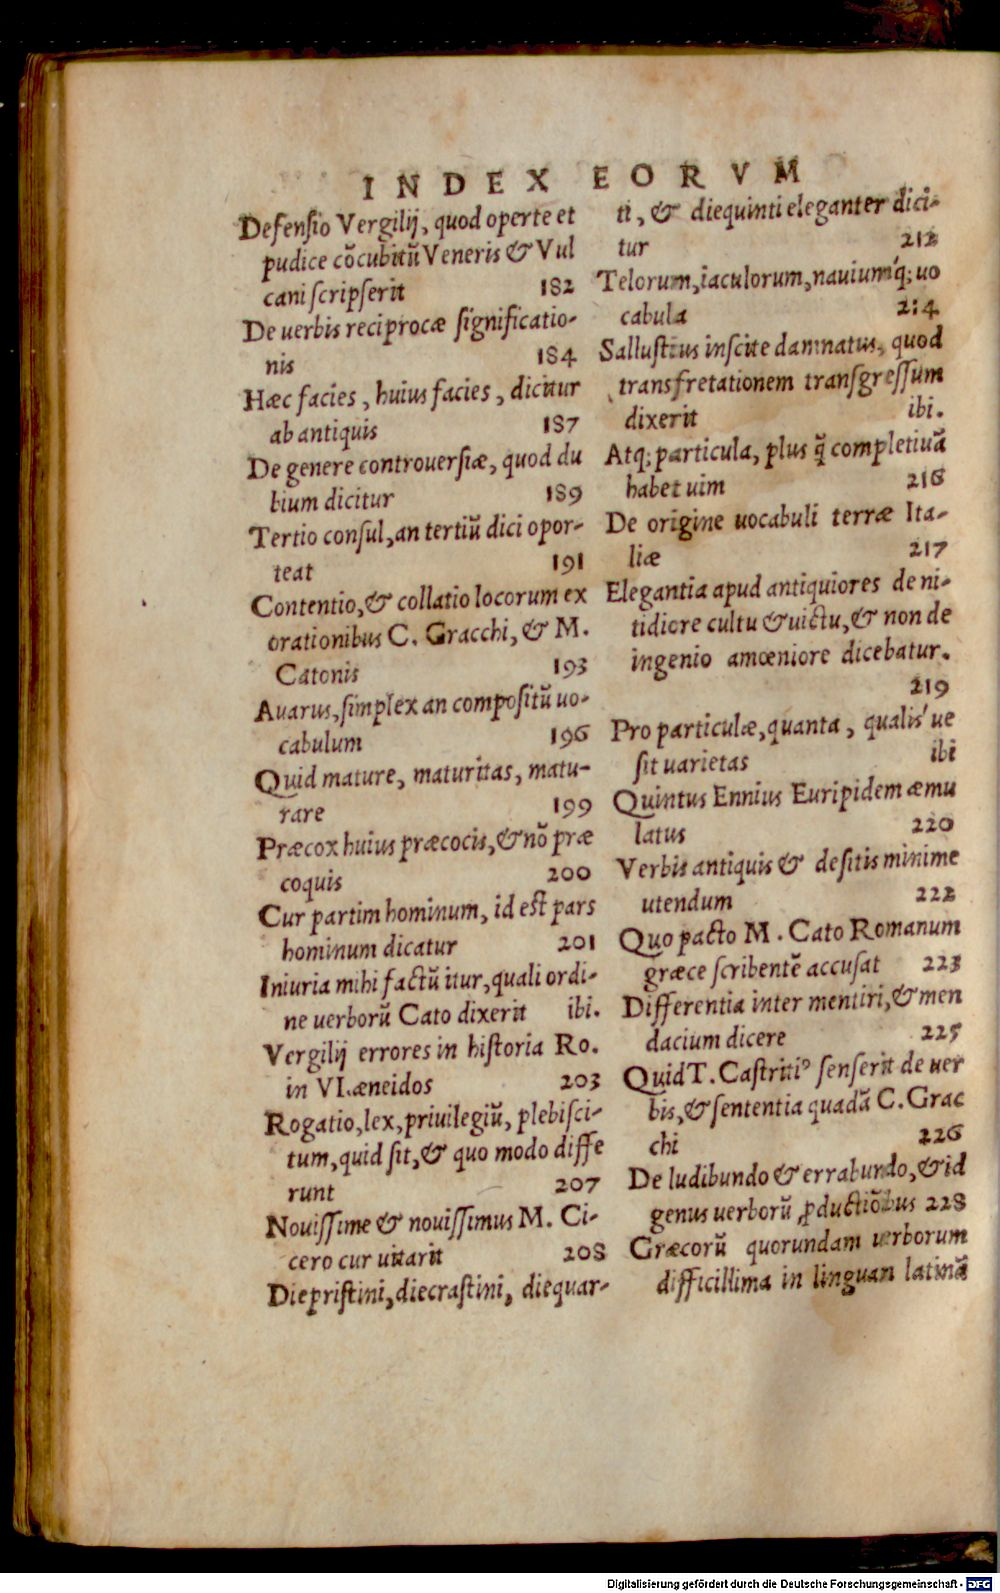 INDEX EORVM
Defensio Vergilij, quod operte et
pudice cōcubitū Veneris & Vul
cani scripserit 182
De uerbis reciprocæ significatio-
nis 184
Hæc facies, huius facies, dicitur
ab antiquis 187
De genere controuersiæ, quod du
bium dicitur 189
Tertio consul, an tertiū dici opor-
teat 191
Contentio, & collatio locorum ex
orationibus C. Gracchi, & M.
Catonis 193
Auarus, simplex an compositū uo-
cabulum 196
Quid mature, maturitas, matu-
rare 199
Præcox huius præcocis, & nō præ
coquis 200
Cur partim hominum, id est pars
hominum dicatur 201
Iniuria mihi factū itur, quali ordi-
ne uerborū Cato dixerit ibi.
Vergilij errores in historia Ro.
in VI. æneidos 203
Rogatio, lex, priuilegiū, plebisci-
tum, quid sit, & quo modo diffe
runt 207
Nouissime & nouissimus M. Ci-
cero cur uitarit 208
Diepristini, diecrastini, diequar-
ti, & diequinti eleganter dici-
tur 212
Telorum, iaculorum, nauiumq́; uo
cabula 214
Sallustius inscite damnatus, quod
transfretationem transgressum
dixerit ibi.
Atq; particula, plus q̄ completiuā
habet uim 216
De origine uocabuli terræ Ita-
liæ 217
Elegantia apud antiquiores de ni-
tidiore cultu & uictu, & non de
ingenio amœniore dicebatur.
219
Pro particulæ, quanta, qualis'ue
sit uarietas ibi
Quintus Ennius Euripidem æmu
latus 220
Verbis antiquis & desitis minime
utendum 222
Quo pacto M. Cato Romanum
græce scribentē accusat 223
Differentia inter mentiri, & men
dacium dicere 225
Quid T. Castritiꝰ senserit de uer
bis, & sententia quadā C. Grac
chi 226
De ludibundo & errabundo, & id
genus uerborū ꝓductiōibus 228
Græcorū quorundam uerborum
difficillima in linguan latinā
Digitalisierung gefördert durch die Deutsche Forschungsgemeinschaft - DFG